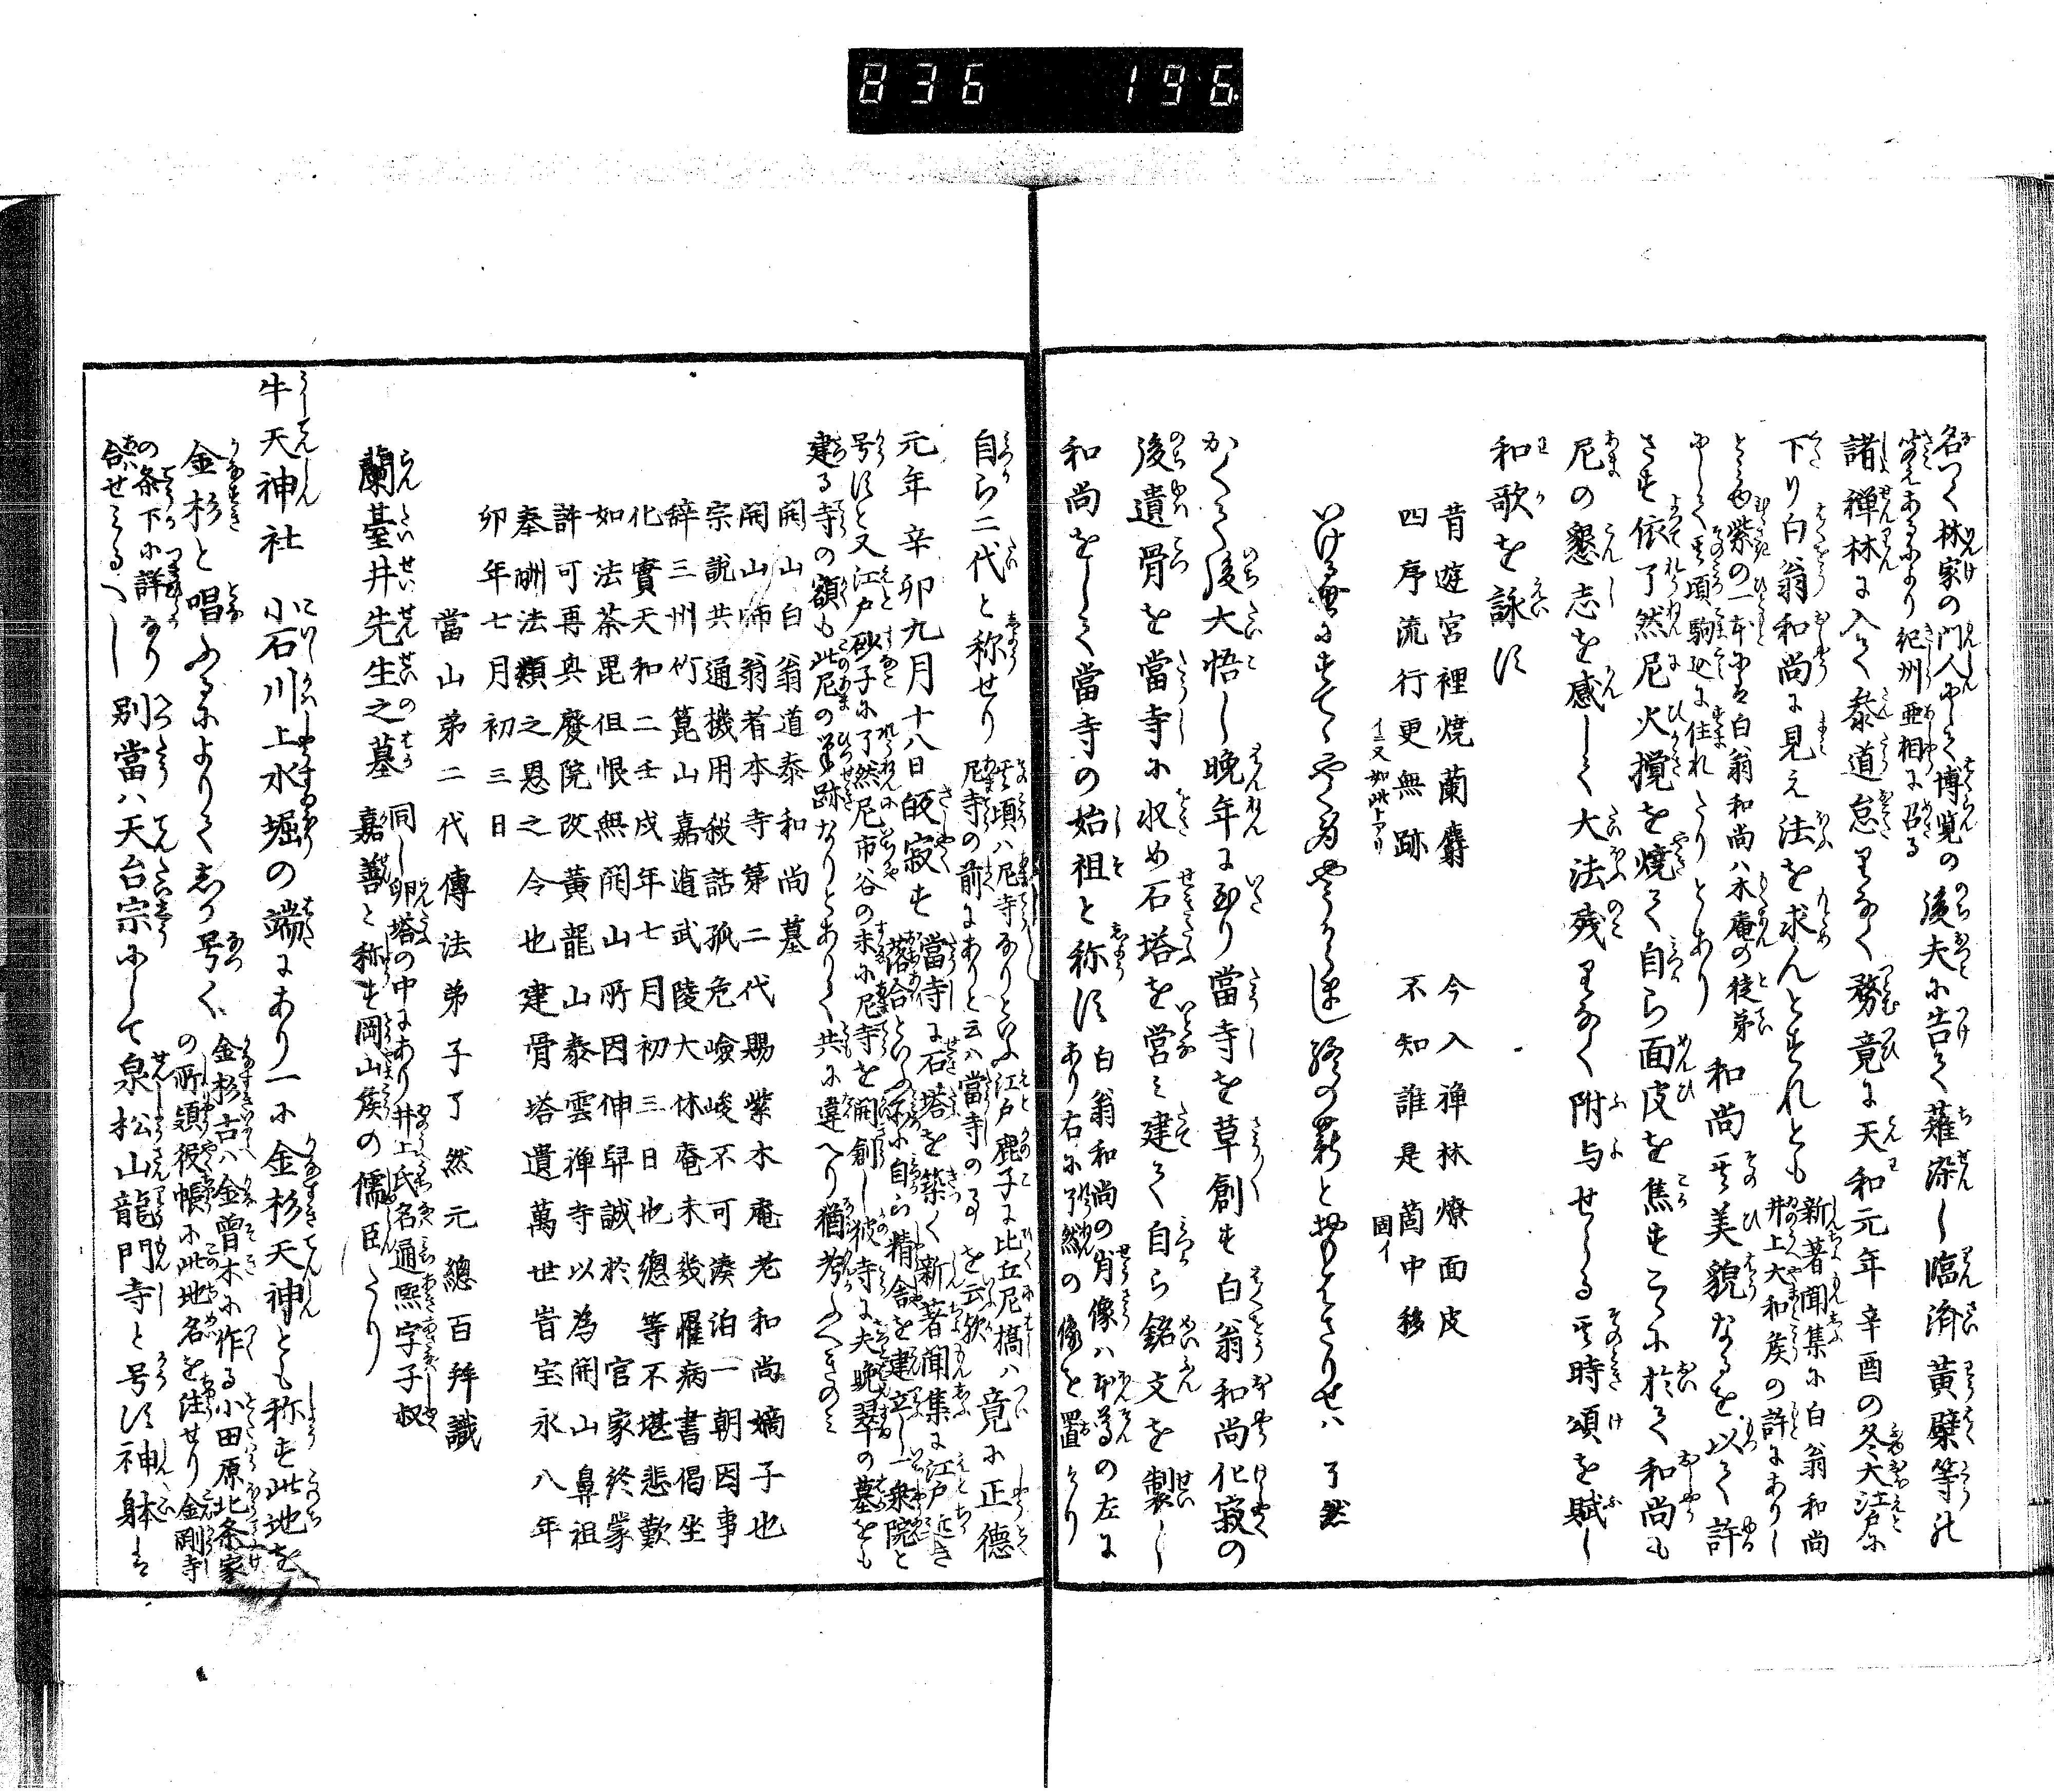 836 196
名つく林家の門人にして博覧の
聞えあるにより紀州亜相に召る
後夫に告て薙染し臨済黄檗等の
諸禅林に入て参道怠りなく務竟に天和元年辛酉の冬大江戸に
下り白翁和尚に見え法を求んとすれとも
新著聞集に白翁和尚
井上大和矦の許にありし
とし紫の一本には白翁和尚ハ木庵の徒弟
にして其頃駒込に住れたりとあり
和尚其美貌なるを以て許
さす依了然尼火攪を焼て自ら面皮を焦すこゝに於て和尚も
尼の懇志を感して大法残りなく附与せらる其時頌を賦し
和歌を詠す
昔遊宮裡焼蘭麝 今入禅林燎面皮
四序流行更無跡 不知誰是箇中移
イニ又如此トアリ 固イ
いける世にすてゝやく身やうからまし終の薪とおもはさりせハ 了然
かくて後大悟し晩年に至り當寺を草創す白翁和尚化寂の
後遺骨を當寺に収め石塔を営み建て自ら銘文を製し
和尚をして當寺の始祖と称す
白翁和尚の肖像ハ本尊の左に
あり右に了然の像を置けり
自ら二代と称せり
其頃ハ尼寺なりといふ江戸鹿子に比丘尼橋ハ
尼寺の前にありと云ハ當寺の事を云歟
竟に正徳
元年辛卯九月十八日皈寂す
當寺に石塔を築く新著聞集に江戸近き
落合といふ所に自ら精舎を建立し一乗院と
号すと又江戸砂子に了然尼市谷の末に尼寺を開創し彼寺に夫晩翠の墓をも
建る寺の額も此尼の筆跡なりとありて共に違へり猶考ふへきのミ
開山白翁道泰和尚墓
開山師翁者本寺第二代賜紫木庵老和尚嫡子也
宗説共通機用殺話孤危嶮峻不可湊泊一朝因事
辞三州竹篦山嘉遁武陵大休庵未幾罹病書偈坐
化實天和二壬戌年七月初三日也總等不堪悲歎
如法茶毘但恨無開山所因伸舁誠於官家終蒙
許可再興廢院改黄龍山泰雲禅寺以為開山鼻祖
奉酬法類之恩之令也建骨塔遺萬世旹宝永八年
卯年七月初三日
當山第二代傳法弟子了然元總百拜識
蘭臺井先生之墓
同し卵塔の中にあり井上氏名通熙字子叔
嘉善と称す岡山矦の儒臣たり
牛天神社 小石川上水堀の端にあり一に金杉天神とも称す此地を
金杉と唱ふるによりてしか号く
金杉古ハ金曽木に作る小田原北条家
の所領役帳に此地名を注せり金剛寺
の条下に詳なり
合せみるへし
別當ハ天台宗にして泉松山龍門寺と号す神躰は